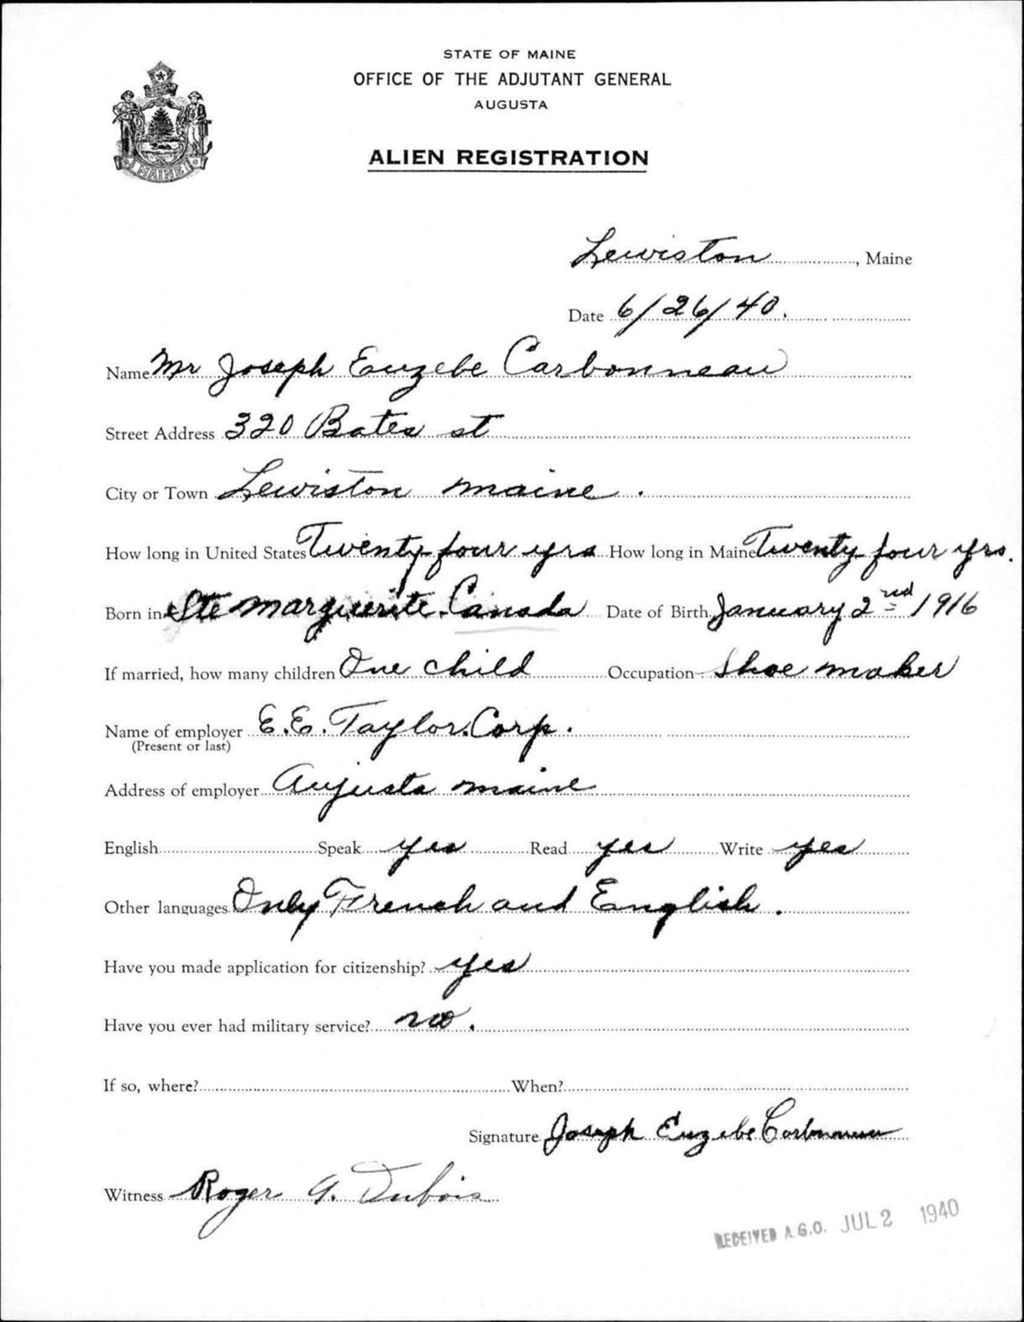 STATE OF MAINE
OFFICE OF THE ADJUTANT GENERAL
AUGUSTA
ALIEN REGISTRATION
MAINE
Lewiston, Maine
Date 6/26/40.
Name Mr Joseph Euzebe Carbonneau
Street Address 320 Bates st
City or Town Lewiston maine.
How long in United States Twenty four yrs How long in Maine Twenty four yrs.
Born in Ste marguerite. Canada Date of Birth January 2nd 1916
If married, how many children One child Occupation Shoe maker
Name of employer E.E. Taylor. Corp.
(Present or last)
Address of employer Augusta maine
English Speak yes Read yes Write yes
Other languages Only French and English.
Have you made application for citizenship? yes
Have you ever had military service? no.
If so, where? When?
Signature Joseph Euzebe Carbonneau
Witness Roger G. Dubois
RECEIVED A.G.O. JUL 2 1940